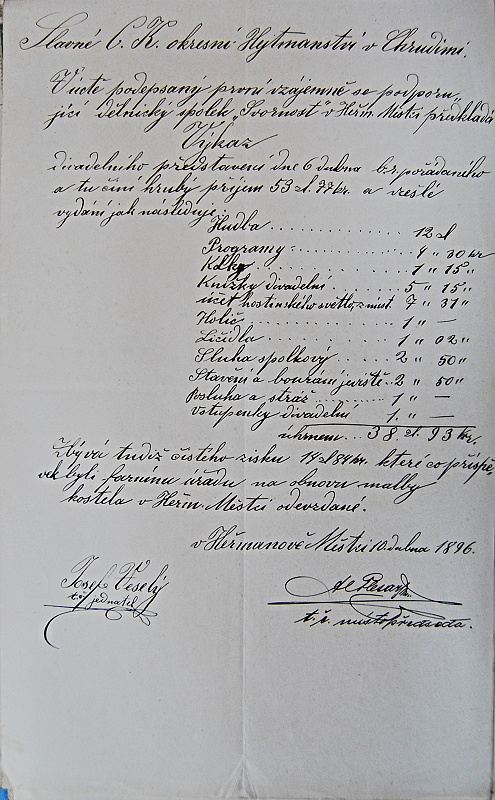 Slavné C. K. okresní Hejtmanství v Chrudimi.
Úcte podepsaný první vzájemně se podporu„
jící dělnický spolek „Svornost“ v Heřm. Městci předkládá
Výkaz
divadelního představení dne 6 dubna b.r. pořádaného
a tu činí hrubý příjem 53 zl. 77 kr. a veškeré
vydání jak následuje.
Hudba . . . . . . . . . . . . . . 12 zl
Programy . . . . . . . . . . . 4 „ 30 kr
Kolky . . . . . . . . . . . . . . 1 „ 15 „
Knížky divadelní . . . . . . 5 „ 15 „
účet hostinského světlo, z míst. 7 „ 31 „
Holič . . . . . . . . . . . . . . 1 „ —
Líčidla . . . . . . . . . . . . . 1 „ 02 „
Sluha spolkový . . . . . . 2 „ 50 „
Stavění a bourání jeviště . . 2 „ 50 „
Posluha a stráž . . . . . . . . 1 „ —
Vstupenky divadelní . . . . 1 „ —
úhrnem . . . 38 zl. 93 kr.
Zbývá tudíž čistého zisku 14 zl 84 kr. které co příspě„
vek byli farnímu úřadu na obnovu malby
kostela v Heřm. Městci odevzdané.
v Heřmanově Městci 10. dubna 1896.
Josef Veselý
t. č. jednatel
t. č. místopředseda.